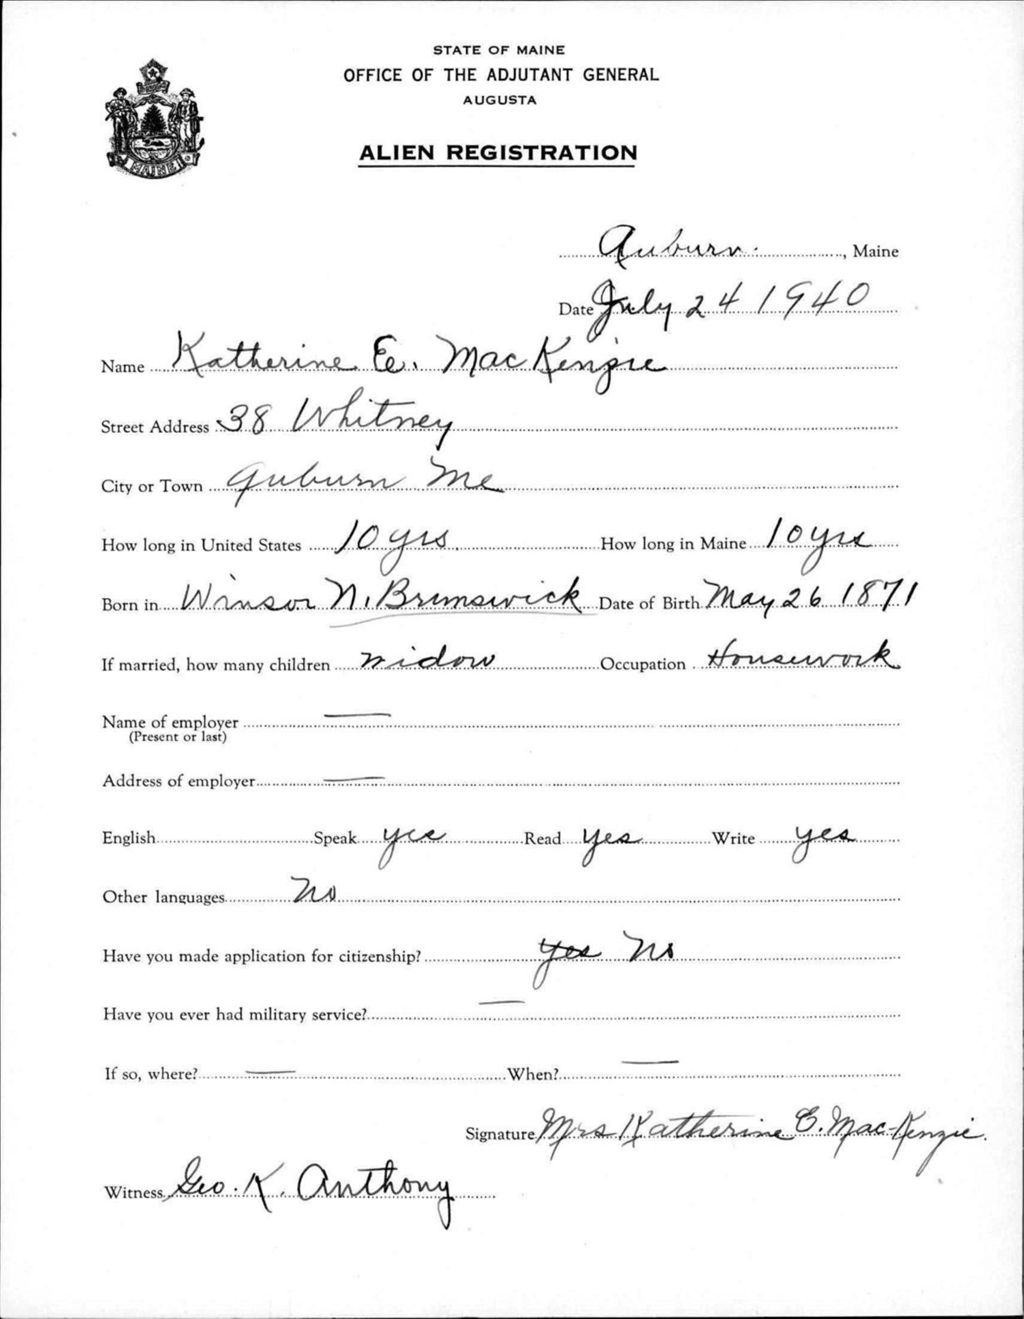 STATE OF MAINE
OFFICE OF THE ADJUTANT GENERAL
AUGUSTA
ALIEN REGISTRATION
MAINE
Auburn. , Maine
Date July 24 1940
Name Katherine E. MacKenzie
Street Address 38 Whitney
City or Town Auburn Me
How long in United States 10 yrs. How long in Maine 10 yrs
Born in Winsor N. Brunswick Date of Birth May 26 1871
If married, how many children widow Occupation Housework
Name of employer —
(Present or last)
Address of employer —
English Speak yes Read yes Write yes
Other languages No
Have you made application for citizenship? yes No
Have you ever had military service? —
If so, where? — When? —
Signature Mrs Katherine E. MacKenzie.
Witness Geo. K. Anthony